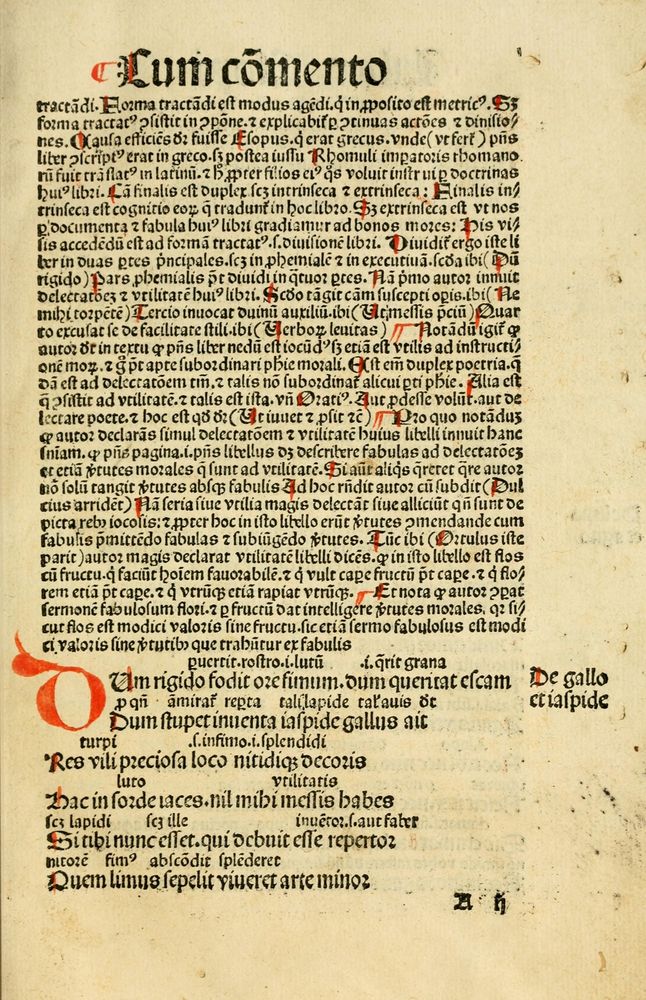 ¶ Cum cōmento
tractādi. Forma tractādi est modus agēdi. q̇ in ꝓposito est metricꝰ. Sꝫ
forma tractatꝰ ꝯsistit in ꝯpōne. ⁊ explicabit᷑ ꝑ ꝯtinuas actōes ⁊ diuisio-
nes. Causa efficiēs dr̄ fuisse Esopus. q̇ erat grecus. vnde (vt fert᷑) pn̄s
liber ꝯscriptꝰ erat in greco. sꝫ postea iussu Rhomuli imꝑatoris rhomano
rū fuit trāslatꝰ in latinū. ⁊ h̄ ꝓpter filios eiꝰ q̄s voluit instrui ꝑ doctrinas
huiꝰ libri. Cā finalis est duplex. scꝫ intrinseca ⁊ extrinseca: Finalis in-
trinseca est cognitio eoꝝ q̄ tradunt᷑ in hoc libro. Sꝫ extrinseca est vt nos
ꝑ documenta ⁊ fabula huiꝰ libri gradiamur ad bonos mores: His vi-
sis accedēdū est ad formā tractatꝰ. s. diuisionē libri. Diuidit᷑ ergo iste li
ber in duas ꝑtes p̄ncipales. scꝫ in ꝓhemialē ⁊ in executiuā. scd̄a ibi (Dū
rigido) Pars ꝓhemialis p̄t diuidi in q̈tuor ꝑtes. Nā p̄mo autor innuit
delectatōeꝫ ⁊ vtilitatē huiꝰ libri. Scd̄o tāgit cām suscepti oꝑis. ibi (Ne
mihi torpētē) Tercio inuocat diuinū auxiliū. ibi (Ut messis p̄ciū) Quar
to excusat se de facilitate stili. ibi (Uerboꝝ leuitas) ¶ Notādū igit᷑ ꝙ
autor dt̄ in textu ꝙ pn̄s liber nedū est iocūdꝰ sꝫ etiā est vtilis ad instructi-
onē moꝝ. ⁊ g̊ p̄t apte subordinari phie morali. Est em̄ duplex poetria. q̄
dā est ad delectatōem tm̄. ⁊ talis nō subordinat᷑ alicui ꝑti phie. Alia est
q̄ ꝯsistit ad vtilitatē. ⁊ talis est ista. vn̄ Oratiꝰ. Aut ꝓdesse volūt. aut de
lectare poete. ⁊ hoc est qd̄ dr̄ (Ut iuuet ⁊ ꝓsit ⁊c̄) ¶ Pro quo notāduꝫ
ꝙ autor declarās simul delectatōem ⁊ vtilitatē huius libelli innuit hanc
sniam. ꝙ pn̄s pagina. i. pn̄s libellus dꝫ describere fabulas ad delectatōeꝫ
et etiā v̓tutes morales q̄ sunt ad vtilitatē. Si aūt aliq̇s q̄reret q̄re autor
nō solū tangit v̓tutes absqꝫ fabulis Ad hoc rn̄dit autor cū subdit (Dul
cius arrident) Nā seria siue vtilia magis delectant siue alliciūt qn̄ sunt de
picta rebꝰ iocosis: ⁊ ꝓpter hoc in isto libello erūt v̓tutes ꝯmendande cum
fabulis p̄mittēdo fabulas ⁊ subiūgēdo v̓tutes. Tūc ibi (Ortulus iste
parit) autor magis declarat vtilitatē libelli dicēs. ꝙ in isto libello est flos
cū fructu. q̇ faciūt hoīem fauorabilē. ⁊ q̇ vult caꝑe fructū p̄t caꝑe. ⁊ q̇ flo-
rem etiā p̄t caꝑe. ⁊ q̇ vtrūqꝫ etiā rapiat vtrūqꝫ. ¶ Et nota ꝙ autor ꝯꝑat
sermonē fabulosum flori. ⁊ ꝑ fructū dat intelligere v̓tutes morales. qr si-
cut flos est modici valoris sine fructu. sic etiā sermo fabulosus est modi
ci valoris sine v̓tutibꝰ que trahūtur ex fabulis
ꝑuertit. rostro. i. lutū .i. q̄rit grana
Dum rigido fodit ore fimum. dum queritat escam
De gallo
et iaspide
ꝓ qn̄ amirat᷑ reꝑta tali lapide dt̄
Dum stupet inuenta iaspide gallus ait
turpi .s. infimo. i. splendidi
Res vili preciosa loco nitidiqꝫ decoris
luto vtilitatis
Hac in sorde iaces. nil mihi messis habes
scꝫ lapidi scꝫ ille inuētor. s. aut faber
Si tibi nunc esset. qui debuit esse repertor
nitorē fimꝰ abscōdit splēderet
Quem limus sepelit viueret arte minor
A ij